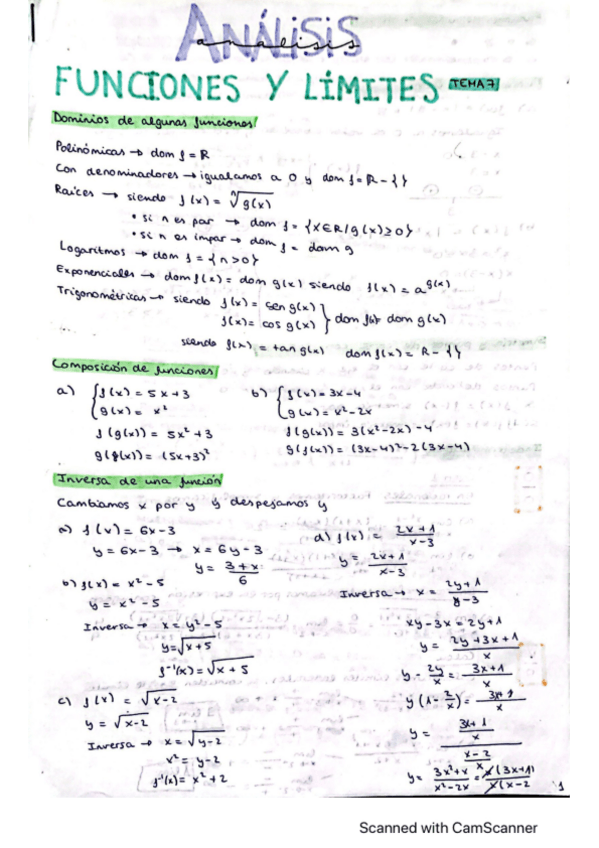 ANÁLISIS
análisis
FUNCIONES Y LÍMITES TEMA 7
Dominios de algunas funciones
Polinómicas → dom f = R
Con denominadores → igualamos a 0 y dom f = R - { }
Raíces → siendo f(x) = ⁿ√g(x)
• si n es par → dom f = {x ∈ R / g(x) ≥ 0}
• si n es impar → dom f = dom g
Logaritmos → dom f = {n > 0}
Exponenciales → dom f(x) = dom g(x) siendo f(x) = a^g(x)
Trigonométricas → siendo f(x) = sen g(x)
f(x) = cos g(x) } dom f(x) = dom g(x)
siendo f(x) = tan g(x) dom f(x) = R - { }
Composición de funciones
a) { f(x) = 5x + 3 b) { f(x) = 3x - 4
g(x) = x² g(x) = x² - 2x
f(g(x)) = 5x² + 3 f(g(x)) = 3(x² - 2x) - 4
g(f(x)) = (5x+3)² g(f(x)) = (3x-4)² - 2(3x-4)
Inversa de una función
Cambiamos x por y y despejamos y
a) f(x) = 6x - 3
y = 6x - 3 → x = 6y - 3
y = (3 + x)/6
b) f(x) = x² - 5
y = x² - 5
Inversa → x = y² - 5
y = √x + 5
f⁻¹(x) = √x + 5
c) f(x) = √x-2
y = √x-2
Inversa → x = √y-2
x² = y - 2
f⁻¹(x) = x² + 2
d) f(x) = (2x+1)/(x-3)
y = (2x+1)/(x-3)
Inversa → x = (2y+1)/(y-3)
xy - 3x = 2y + 1
y = (2y + 3x + 1)/x
y - 2y/x = (3x+1)/x
y(1 - 2/x) = (3x+1)/x
y = ((3x+1)/x)/((x-2)/x)
y = (3x²+x)/(x²-2x) = x(3x+1)/x(x-2
1
Scanned with CamScanner